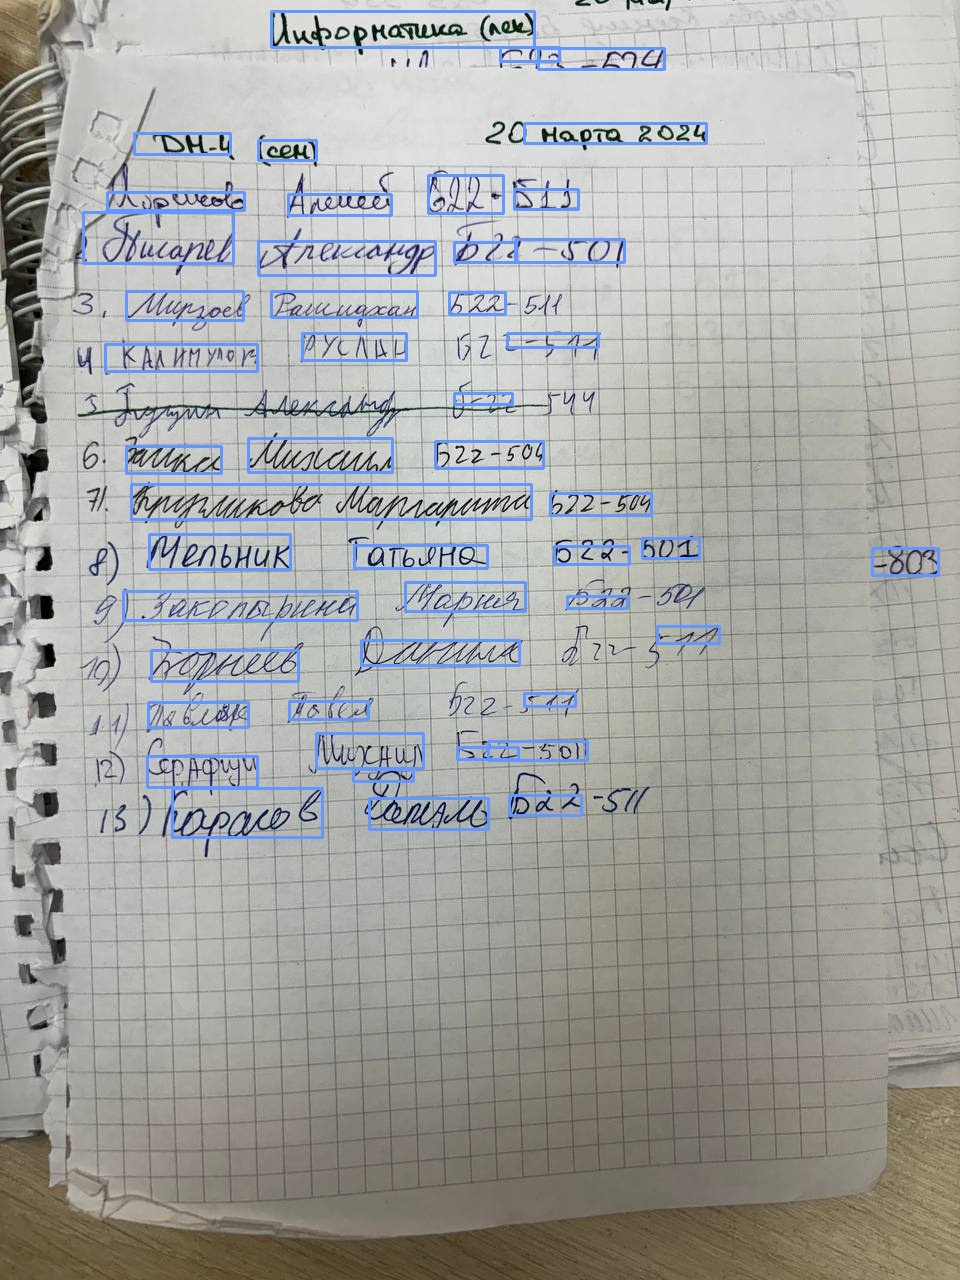 Информатика (лек)
-574
ДМ-4 (сем) 20 марта 2024
Алексей Б22-511
Писарев Александр Б22-501
3. Мирзоев Рашидхан Б22-511
4 КАЛИМУЛОК РУСЛАН Б22-511
5 Гущин Александр Б22-544
6. Заика Михаил Б22-504
7. Кругликова Маргарита Б22-504
8) Мельник Татьяна Б22-501
-803
9) Закопырина Мария Б22-501
10) Корнеев Даниил Б22-511
11) Павел Б22-511
12) СЕРАФИМ Михаил Б22-501
13) Б22-511